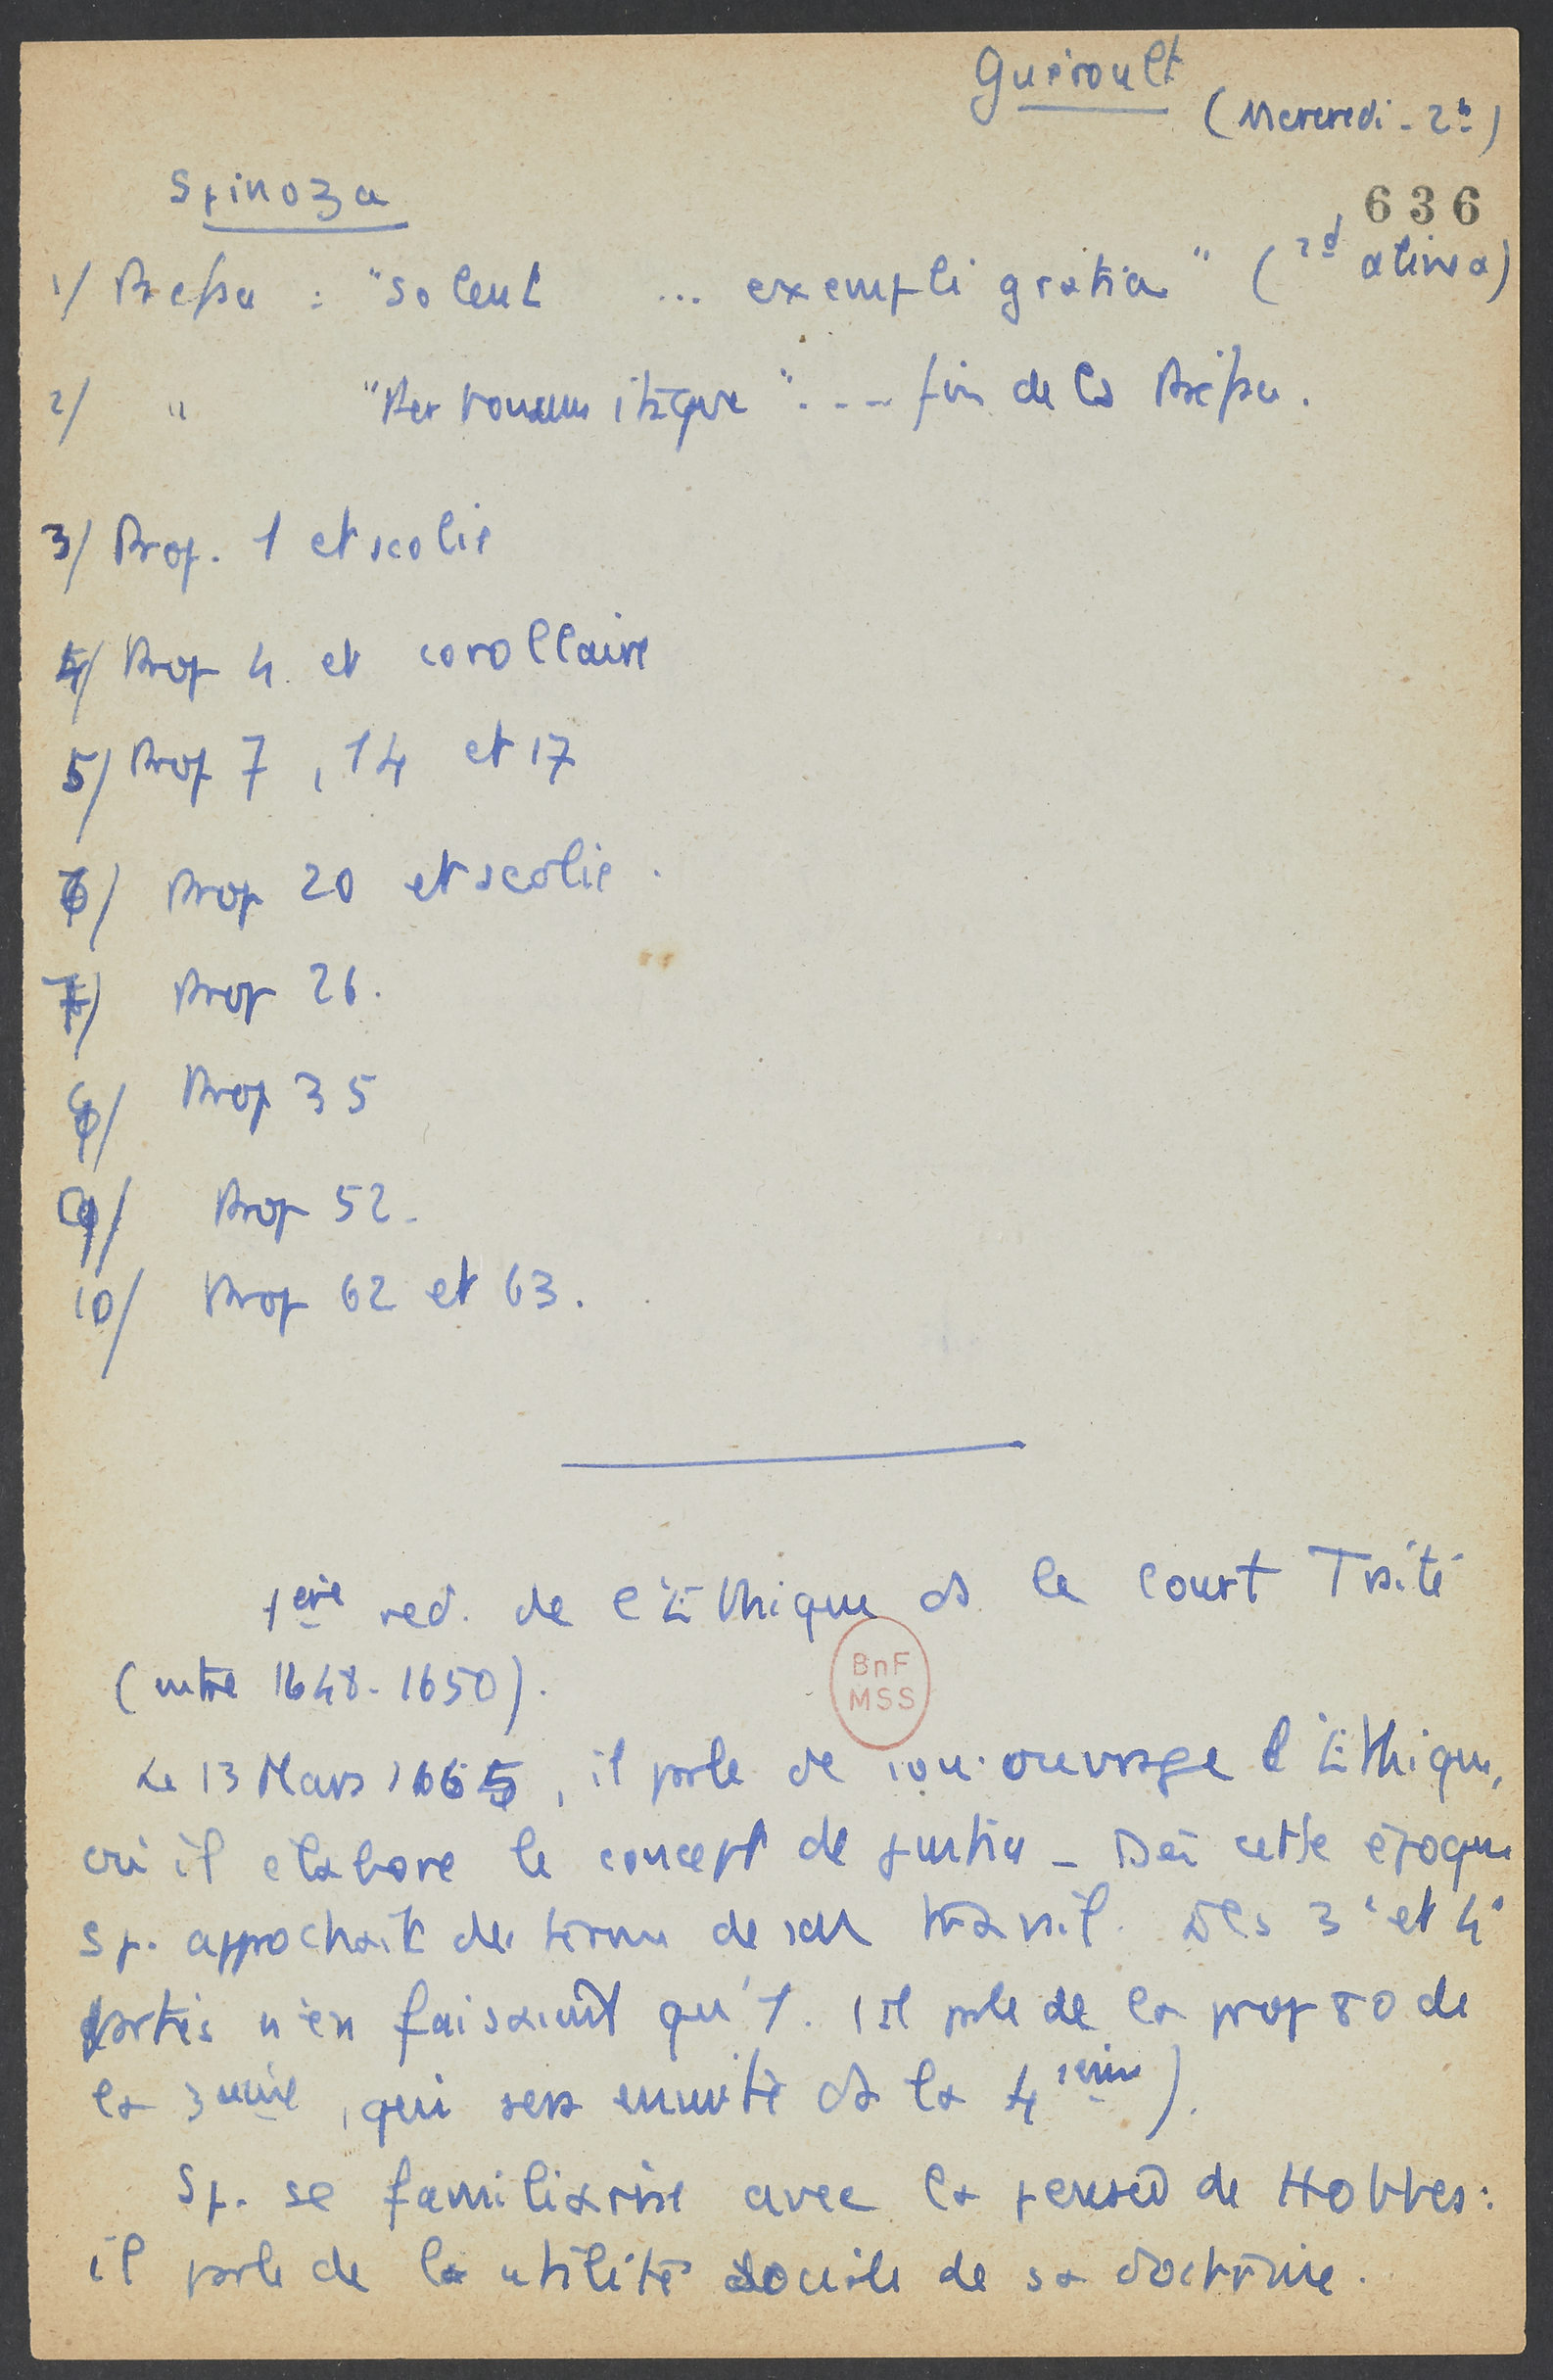 Guéroult
(Mercredi - 2h)
636
Spinoza
1/ Préfa : "Solent ... exempli gratia" (2d alinea)
2/ " "Per bonum itaque" ... fin de la Préfa.
3/ Prop. 1 et scolie
4/ Prop 4 et corollaire
5/ Prop 7, 14 et 17
6/ Prop 20 et scolie.
7/ Prop 26.
8/ Prop 35
9/ Prop 52.
10/ Prop 62 et 63.
1ère red. de l'Ethique ds le Court Traité
(entre 1648-1650).
Le 13 Mars 1665, il parle de son ouvrage l'Ethique,
où il elabore le concept de justia - Dès cette époque
Sp. approchait du terme de son travail. Les 3e et 4e
parties n'en faisaient qu'1. (il parle de la prop 80 de
la 3ème, qui sera ds la 4ième).
Sp. se familiarise avec la pensée de Hobbes :
il parle de la utilité sociale de sa doctrine.
BnF
MSS